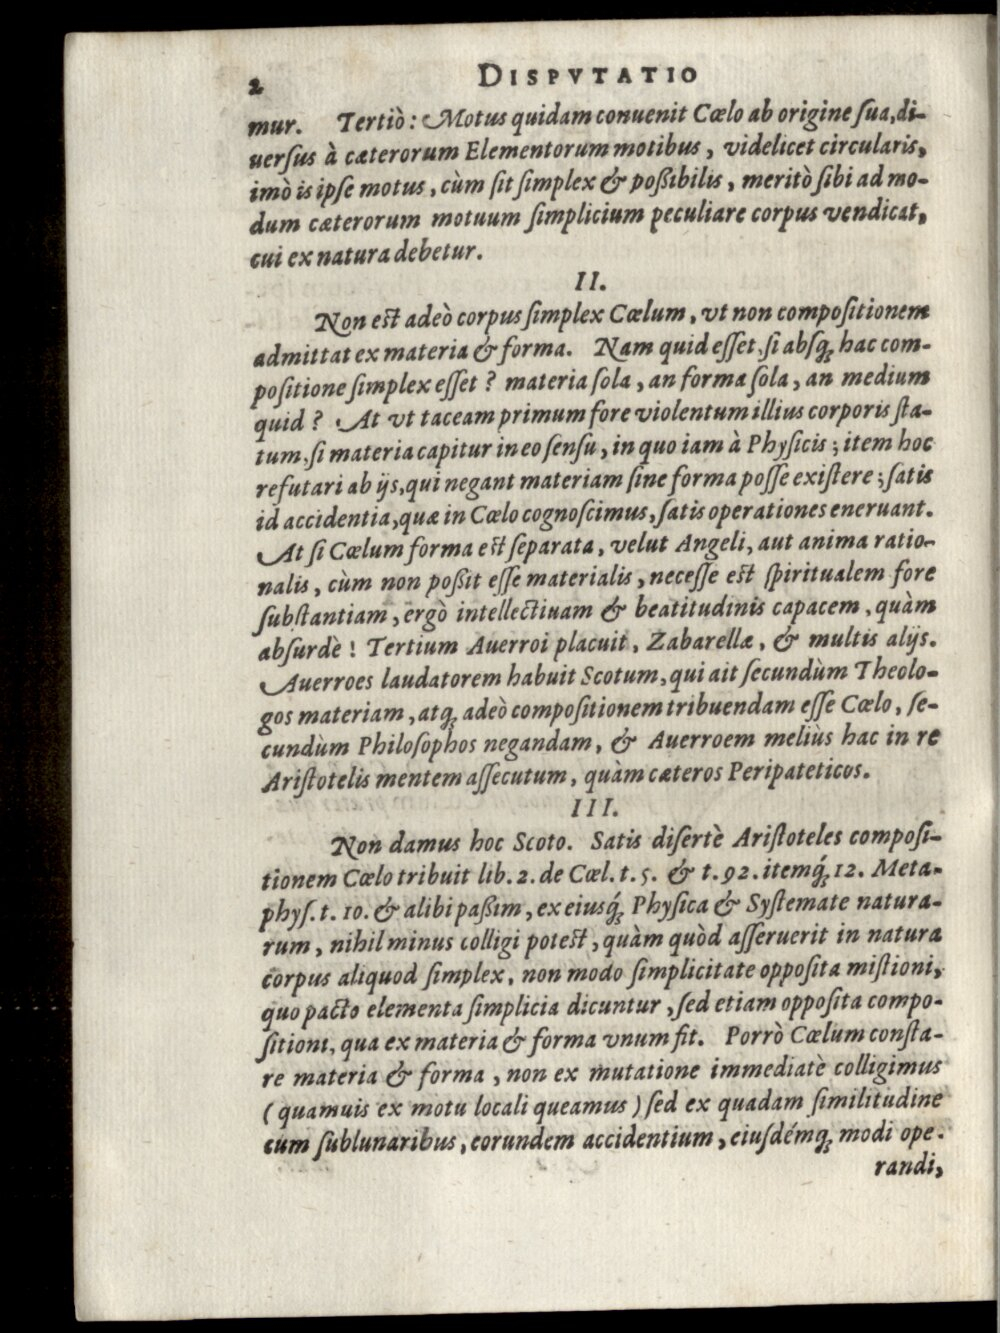 2 DISPVTATIO
mur. Tertiò: Motus quidam conuenit Cœlo ab origine ſua, di-
uerſus à cæterorum Elementorum motibus, videlicet circularis,
imò is ipſe motus, cùm ſit ſimplex & poßibilis, meritò ſibi ad mo-
dum cæterorum motuum ſimplicium peculiare corpus vendicat,
cui ex natura debetur.
II.
Non eſt adeò corpus ſimplex Cœlum, vt non compoſitionem
admittat ex materia & forma. Nam quid eſſet, ſi abſq; hac com-
poſitione ſimplex eſſet? materia ſola, an forma ſola, an medium
quid? At vt taceam primum fore violentum illius corporis ſta-
tum, ſi materia capitur in eo ſenſu, in quo iam à Phyſicis; item hoc
refutari ab ijs, qui negant materiam ſine forma poſſe exiſtere; ſatis
id accidentia, quæ in Cœlo cognoſcimus, ſatis operationes eneruant.
At ſi Cœlum forma eſt ſeparata, velut Angeli, aut anima ratio-
nalis, cùm non poßit eſſe materialis, neceſſe eſt ſpiritualem fore
ſubſtantiam, ergò intellectiuam & beatitudinis capacem, quàm
abſurdè! Tertium Auerroi placuit, Zabarellæ, & multis alijs.
Auerroes laudatorem habuit Scotum, qui ait ſecundùm Theolo-
gos materiam, atq; adeò compoſitionem tribuendam eſſe Cœlo, ſe-
cundùm Philoſophos negandam, & Auerroem meliùs hac in re
Ariſtotelis mentem aſſecutum, quàm cæteros Peripateticos.
III.
Non damus hoc Scoto. Satis diſertè Ariſtoteles compoſi-
tionem Cœlo tribuit lib. 2. de Cœl. t. 5. & t. 92. itemq́; 12. Meta-
phyſ. t. 10. & alibi paßim, ex eiusq́; Phyſica & Syſtemate natura-
rum, nihil minus colligi poteſt, quàm quòd aſſeruerit in natura
corpus aliquod ſimplex, non modo ſimplicitate oppoſita miſtioni,
quo pacto elementa ſimplicia dicuntur, ſed etiam oppoſita compo-
ſitioni, qua ex materia & forma vnum fit. Porrò Cœlum conſta-
re materia & forma, non ex mutatione immediatè colligimus
(quamuis ex motu locali queamus) ſed ex quadam ſimilitudine
cum ſublunaribus, eorundem accidentium, eiuſdémq; modi ope-
randi,